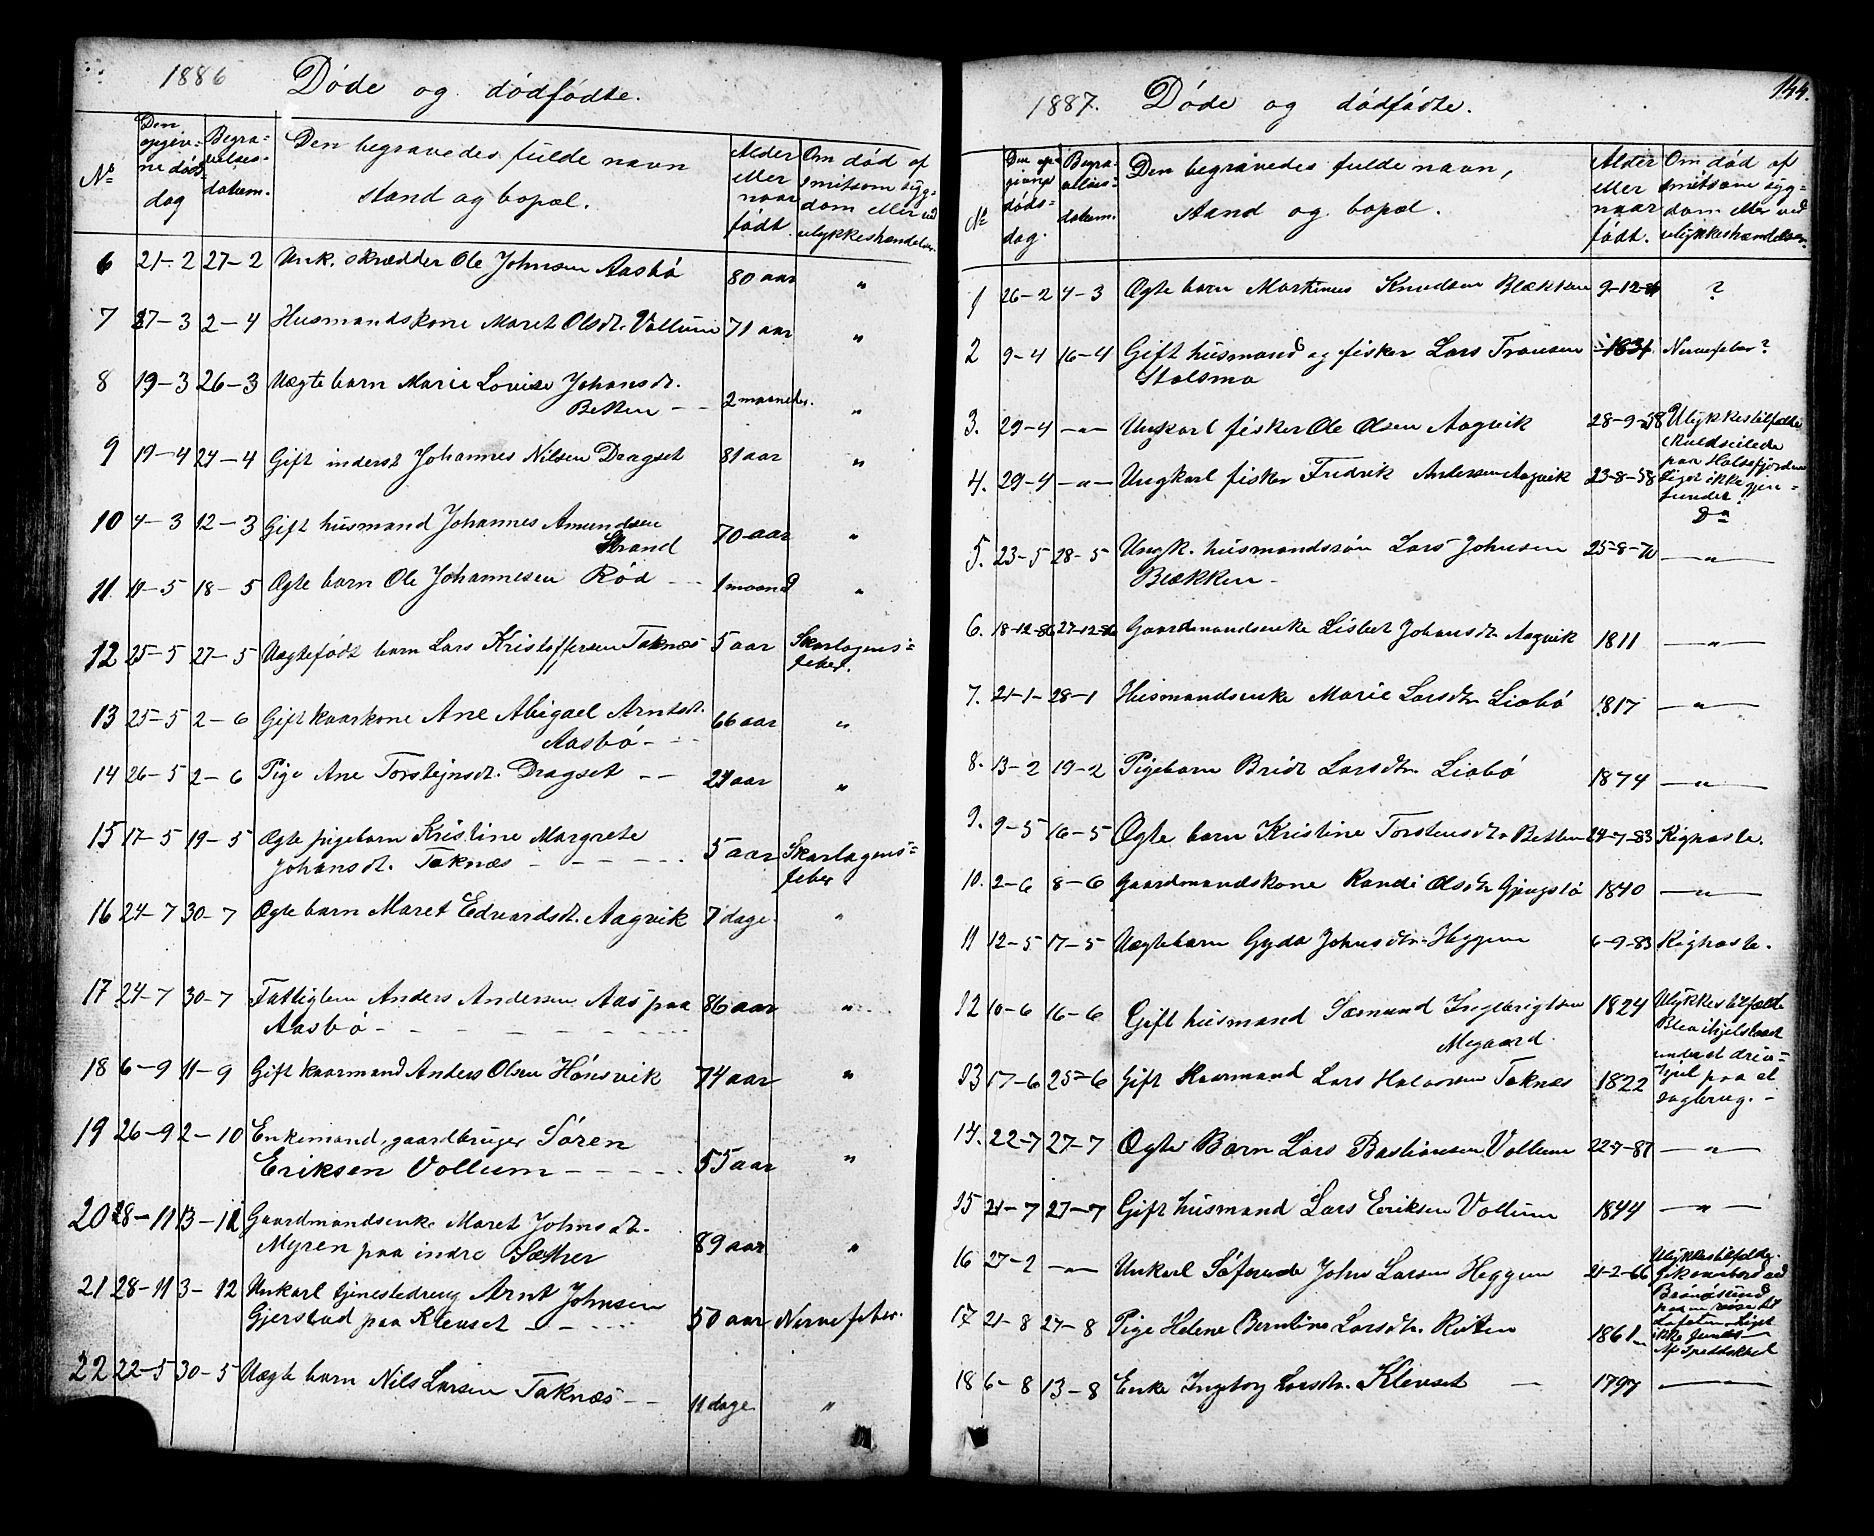 1886 Døde og dødfødte.
No Den opgivne døds dag Begravelses-datum. Den begravedes fulde navn stand og bopæl. Alder eller naar født. Om død af smitsom sygdom eller ved ulykkeshændelse.
6 21-2 27-2 Unk. skrædder Ole Johnsen Aasbø 80 aar "
7 27-3 2-4 Husmandskone Maret Olsdt. Vollum 71 aar "
8 19-3 26-3 Uægte barn Marie Lovise Johansdt.
Betten -- 2 maaneder. "
9 19-4 24-4 Gift inderst Johannes Nilsen Dragset 81 aar "
10 4-3 12-3 Gift husmand Johannes Amundsen
Strand 70 aar "
11 11-5 18-5 Ægte barn Ole Johannesen Rød -- 1 maaned "
12 25-5 27-5 Uægtefødt barn Lars Kristoffersen Taknæs 5 aar Skarlagens=
feber.
13 25-5 2-6 Gift kaarkone Ane Abigael Arntsdt.
Aasbø -- 66 aar "
14 26-5 2-6 Pige Ane Torstejnsdt. Dragset -- 24 aar "
15 17-5 19-5 Ægte pigebarn Kristine Margrete
Johansdt. Taknæs ---- 5 aar Skarlagens=
feber
16 24-7 30-7 Ægte barn Maret Edvardsdt. Aagvik 7 dage. "
17 24-7 30-7 Fattiglem Anders Andersen Aas paa
Aasbø ------ 86 aar "
18 6-9 11-9 Gift kaarmand Anders Olsen Hønsvik 74 aar "
19 26-9 2-10 Enkemand, gaardbruger Søren
Eriksen Vollum ---- 55 aar "
20 28-11 13-12 Gaardmandsenke Maret Johnsdt.
Myren paa indre Sæther 89 aar "
21 28-11 3-12 Unkarl tjenestedreng Arnt Johnsen
Gjerstad paa Klevset --- 50 aar Nervefeber.
22 22-5 30-5 Uægte barn Nils Larsen Taknæs -- 11 dage "
144.
1887. Døde og dødfødte.
No Den opgivne døds-dag. Begravelses-datum. Den begravedes fulde navn, stand og bopæl. Alder eller naar født. Om død af smitsom sygdom eller ved ulykkeshændelse.
1 26-2 4-3 Ægte barn Martinus Knudsen Blækken 9-12-86 ?
2 9-4 16-4 Gift husmand og fisker Lars Trausen 1831 Nervefeber?
Stolsmo
3. 29-4 -"- Ungkarl fisker Ole Olsen Aagvik 28-9-58 Ulykkestilfælde
Kuldseilede
paa Halsefjorden
Liget ikke gjen=
fundet
4. 29-4 -"- Ungkarl fisker Fredrik Andersen Aagvik 23-8-58 Do
5. 23-5 28-5 Ungk. husmandssøn Lars Johnsen 25-8-70 -"-
Blækken -
6. 18-12-86 27-12-86 Gaardmandsenke Lisbet Johansdtr Aagvik 1811 -"-
7. 21-1- 28-1 Husmandsenke Marie Larsdtr Liabø 1817 -"-
8. 13-2 19-2 Pigebarn Bridt Larsdtr Liabø 1874 -"-
9. 9-5 16-5 Ægte barn Kristine Torstensdtr Betten 24-7-83 Kighoste.
10. 2-6 8-6 Gaardmandskone Randi Olsdtr Gjengstø 1840 -"-
11 12-5 17-5 Uægtebarn Gyda Johnsdtr Heggem 6-9-83 Kighoste.
12 10-6 16-6 Gift husmand Sæmund Ingebrigtsen 1824 Ulykkestilfælde
Megaard. Blev ihjelslaaet
under et driv=
hjul paa et
sagbrug. -
13 17-6 25-6 Gift Kaarmand Lars Halvorsen Taknæs 1822
14. 22-7 27-7 Ægte Barn Lars Bastiansen Vollum 22-7-87 -"-
15 21-7 27-7 Gift husmand Lars Eriksen Vollum 1844 -"-
16 27-2 -"- Unkarl Søfarende John Larsen Heggem 21-2-66 Ulykkestilfælde.
Gik overbord ved
Brønøsund
paa en reise til
Lofoten. Liget
ikke fundet
17 21-8 27-8 Pige Helene Berntine Larsdtr. Røiten 1861 Af Spedalskhed
18 6-8 13-8 Enke Ingeborg Larsdtr. Klevset - 1797 -